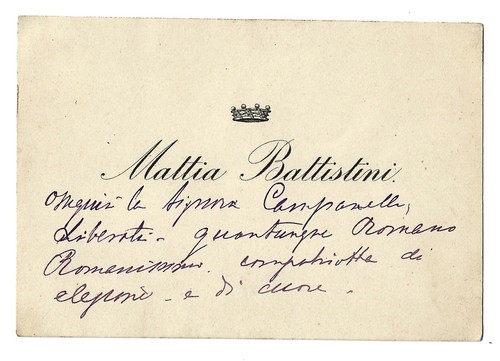 Mattia Battistini.
ossequia la Signora Campanella,
Liberati - quantunque Romano
Romanissimo. compatriotta di
elezione - e di cuore.